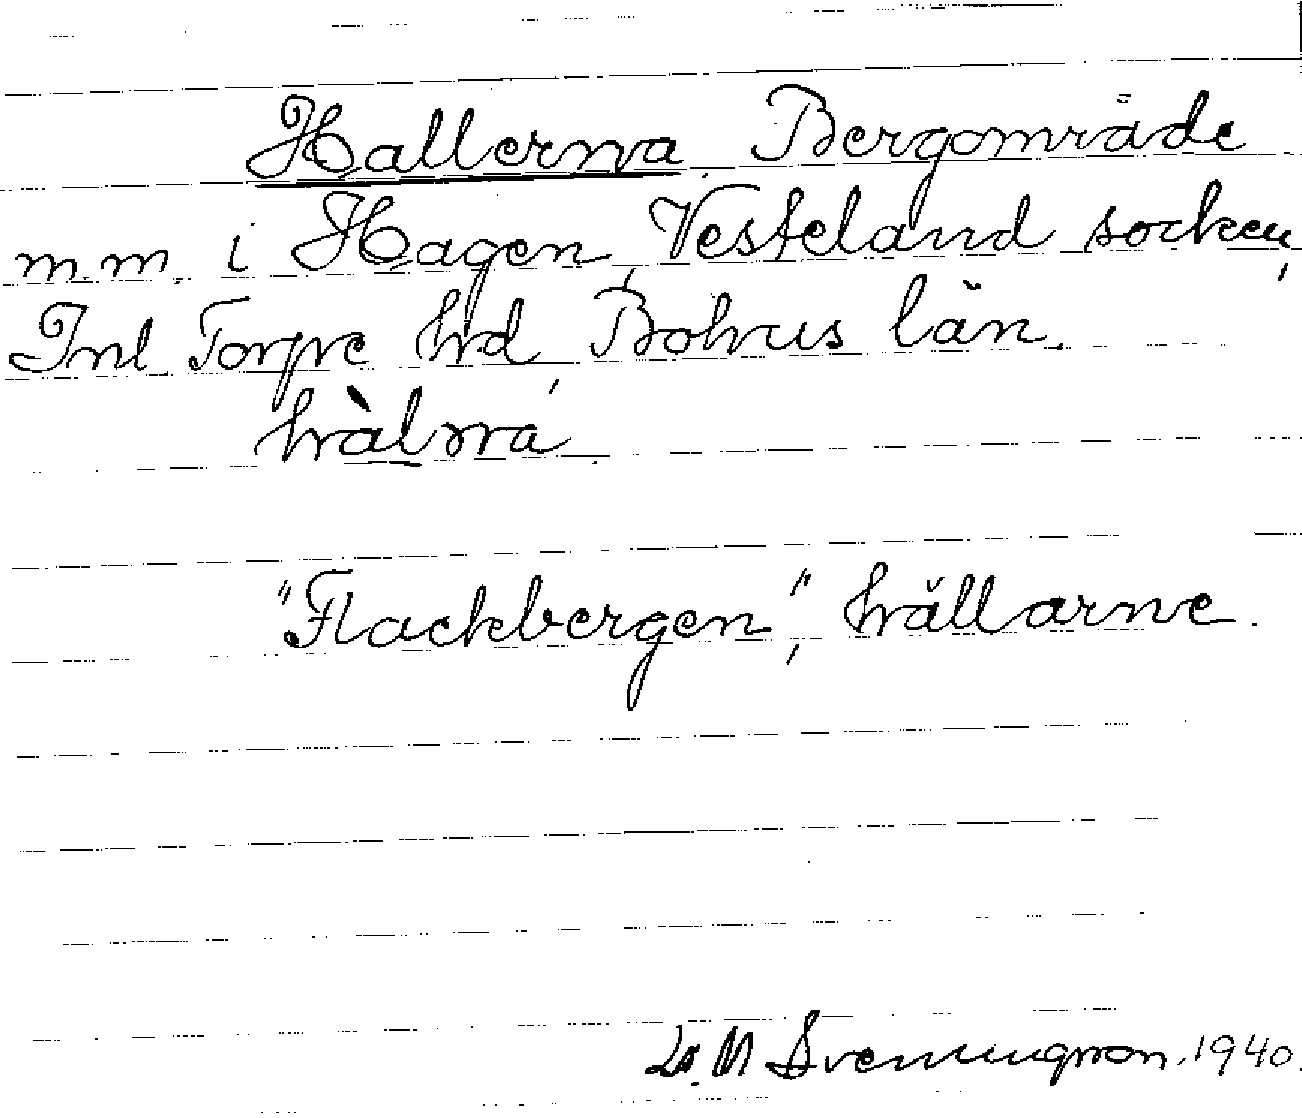 Hallerna Bergområde
m.m. i Hagen, Vesteland socken,
Inl Torpe hd, Bohus län.
hàlna
"Flackbergen", hällarne.
Svenningson. 1940.